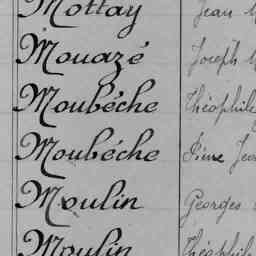 Mottay Jean
Mouazé Joseph
Moubéche Théophile
Moubéche Pierre Jean
Moulin Georges
Moulin Théophile